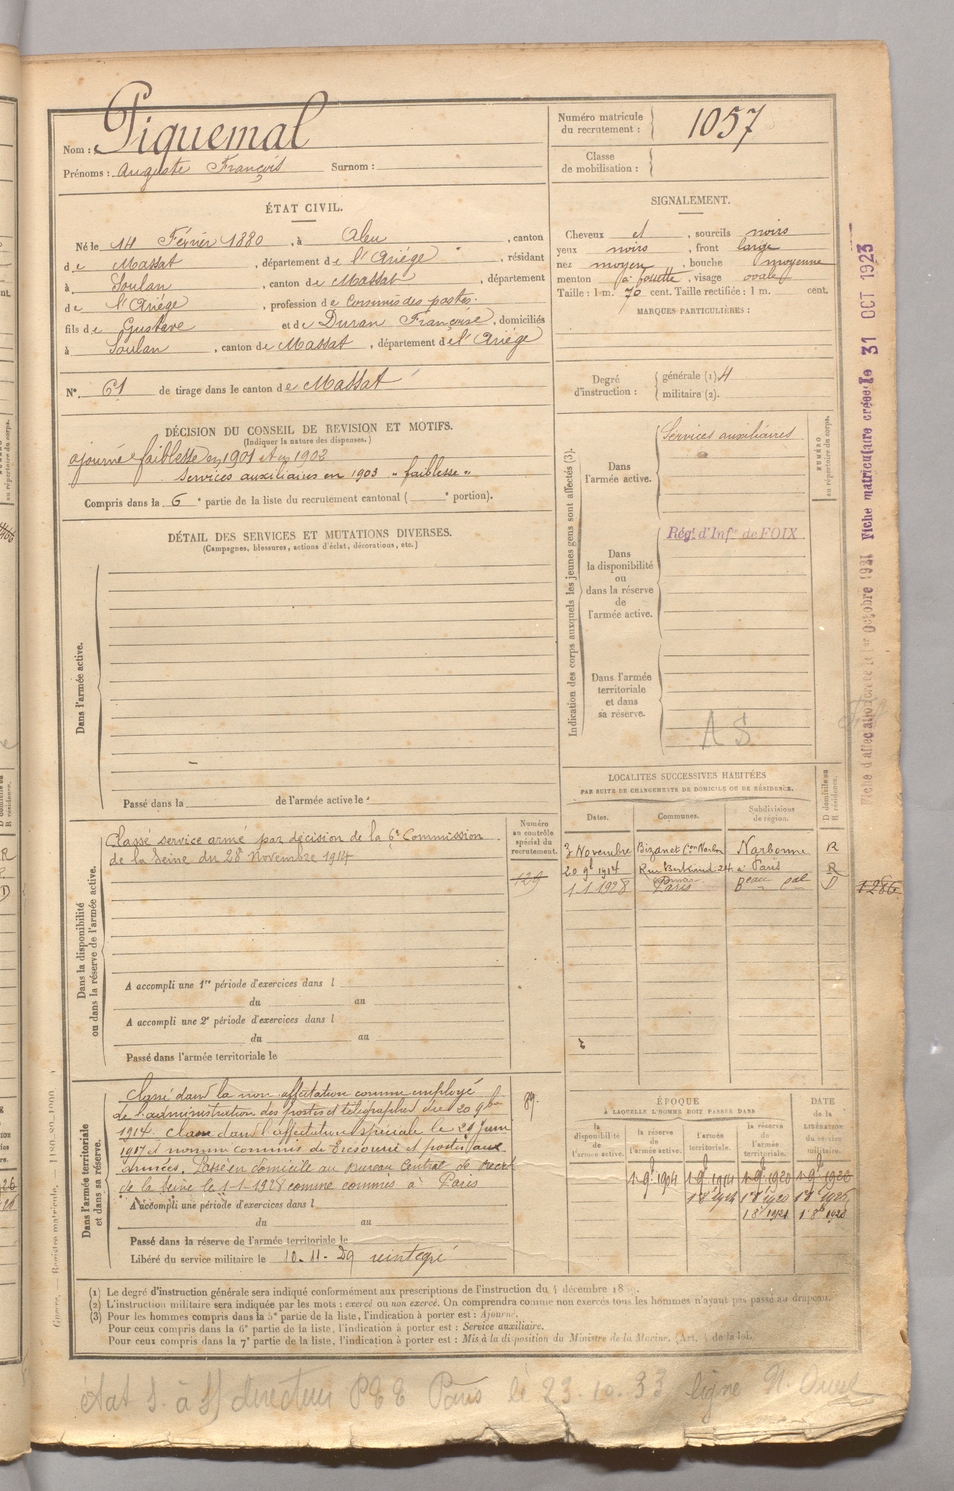 Nom : Piquemal
Prénoms : Auguste François Surnom :
Numéro matricule
du recrutement : 1057
Classe
de mobilisation :
ÉTAT CIVIL.
Né le 14 Février 1880, à Aleu, canton
de Massat, département de l'Ariège, résidant
à Soulan, canton de Massat, département
de l'Ariège, profession de Commis des postes.
fils de Gustave et de Duran Françoise, domiciliés
à Soulan, canton de Massat, département de l'Ariège
N° 61 de tirage dans le canton de Massat
SIGNALEMENT.
Cheveux et, sourcils noirs
yeux noirs, front large
nez moyen, bouche moyenne
menton à fossette, visage ovale
Taille : 1 m. 70 cent. Taille rectifiée : 1 m. cent.
MARQUES PARTICULIÈRES :
Degré
d'instruction :
générale (1). 4
militaire (2).
DÉCISION DU CONSEIL DE REVISION ET MOTIFS.
(Indiquer la nature des dispenses.)
ajourné faiblesse en 1901 et en 1902
Services auxiliaires en 1903 "faiblesse"
Compris dans la 6e partie de la liste du recrutement cantonal ( e portion).
DÉTAIL DES SERVICES ET MUTATIONS DIVERSES.
(Campagnes, blessures, actions d'éclat, décorations, etc.)
Dans l'armée active.
Passé dans la de l'armée active le
Indication des corps auxquels les jeunes gens sont affectés (3).
Dans
l'armée active.
Services auxiliaires
NUMÉRO
au répertoire du corps.
Dans
la disponibilité
ou
dans la réserve
de
l'armée active.
Régt d'Infie de FOIX
Dans l'armée
territoriale
et dans
sa réserve.
A S
LOCALITÉS SUCCESSIVES HABITÉES
PAR SUITE DE CHANGEMENTS DE DOMICILE OU DE RÉSIDENCE.
Dates. Communes. Subdivisions
de région. D domicile ou
R résidence.
3 Novembre Bizanet Con Narbon Narbonne R
20 9b 1914 Rue Bertrand 24 à Paris R
1-1 1928 Paris Beau Cal D
1286
Dans la disponibilité
ou dans la réserve de l'armée active.
Numéro
au contrôle
spécial du
recrutement.
129
Classé service armé par décision de la 6e Commission
de la Seine du 28 Novembre 1914
A accompli une 1re période d'exercices dans l
du au
A accompli une 2e période d'exercices dans l
du au
Passé dans l'armée territoriale le
Dans l'armée territoriale
et dans sa réserve.
89.
Classé dans la non affectation comme employé
de l'administration des postes et télégraphes du 20 9bre
1914. Classé dans l'affectation spéciale le 21 Juin
1917 et nommé commis de Trésorerie et postes aux
armées. Passé en domicile au Bureau Central de Recrt
de la Seine le 1-1-1928 comme commis à Paris
A accompli une période d'exercices dans l
du au
Passé dans la réserve de l'armée territoriale le
Libéré du service militaire le 10-11-29 réintégré
ÉPOQUE
À LAQUELLE L'HOMME DOIT PASSER DANS
la
disponibilité
de
l'armée active.
la réserve
de
l'armée active.
l'armée
territoriale.
la réserve
de
l'armée
territoriale.
DATE
de la
LIBÉRATION
du service
militaire.
(1) Le degré d'instruction générale sera indiqué conformément aux prescriptions de l'instruction du 4 décembre
(2) L'instruction militaire sera indiquée par les mots : exercé ou non exercé. On comprendra comme non exercés tous les hommes n'ayant pas passé au drapeau.
(3) Pour les hommes compris dans la 5e partie de la liste, l'indication à porter est : Ajourné.
Pour ceux compris dans la 6e partie de la liste, l'indication à porter est : Service auxiliaire.
Pour ceux compris dans la 7e partie de la liste, l'indication à porter est : Mis à la disposition du Ministre de la Marine. (Art. 4 de la loi.
directeur Paris le 23.10.33 ligne N. Ouest
Fiche matriculaire créée le 31 OCT 1923